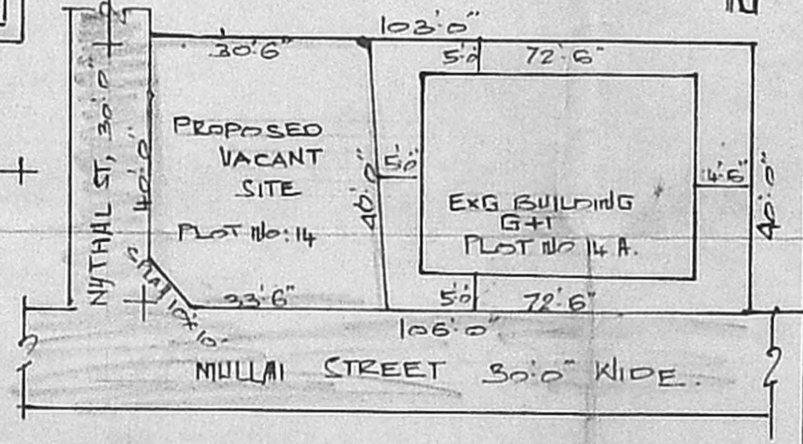 103'-0"
30'6"
5'0
72'-6"
NYTHAL ST, 30'0"
40'-0"
PROPOSED
VACANT
SITE
PLOT No:14
40'-0"
5'0"
EXG BUILDING
G+1
PLOT No 14 A.
4'-6"
40'-0"
SPLAY 10'x10'
33'-6"
5'0
72'-6"
106'-0"
MULLAI STREET 30'0" WIDE.